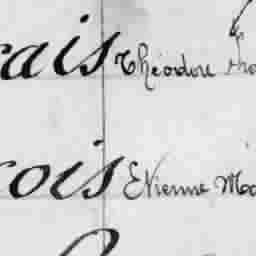 rais Théodore
rois Etienne